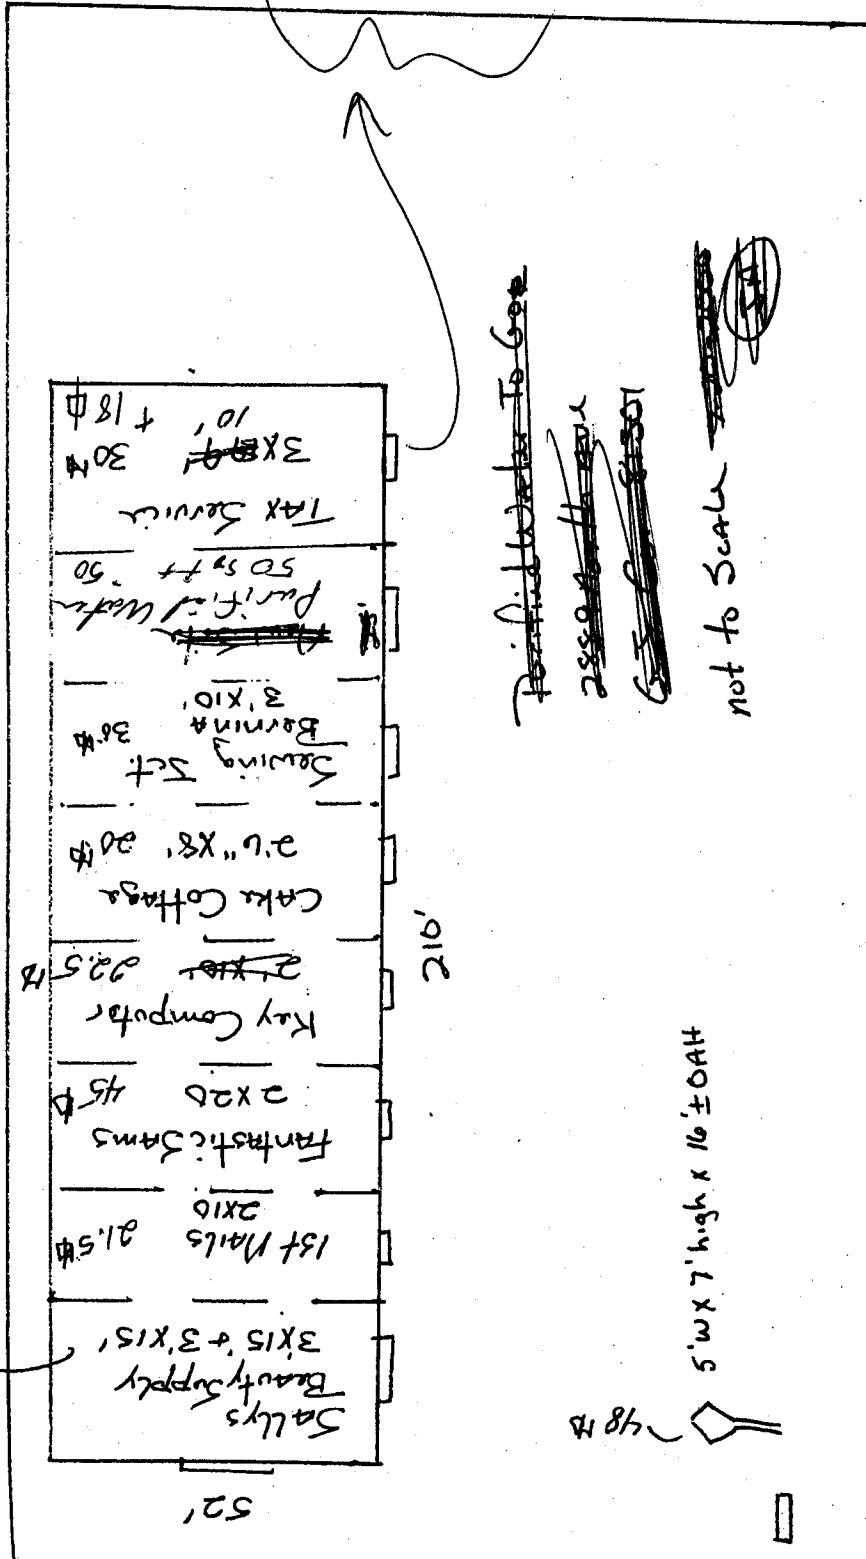 52'
Sallys
Beauty Supply
3'x15' + 3'x15'
1st Nails 21.5
2x10
Fantastic Sams
2x20 45
Key Computer
2'x10' 22.5
Cake Cottage
2'6"x8' 20
Sewing Jct.
Bernina
3'x10'
Purified Water
50 sq ft 50
Tax Service
3x 10' 30
+ 18
210'
Purified Water To Go
not to Scale
48
5'w x 7' high x 16' ± OAH